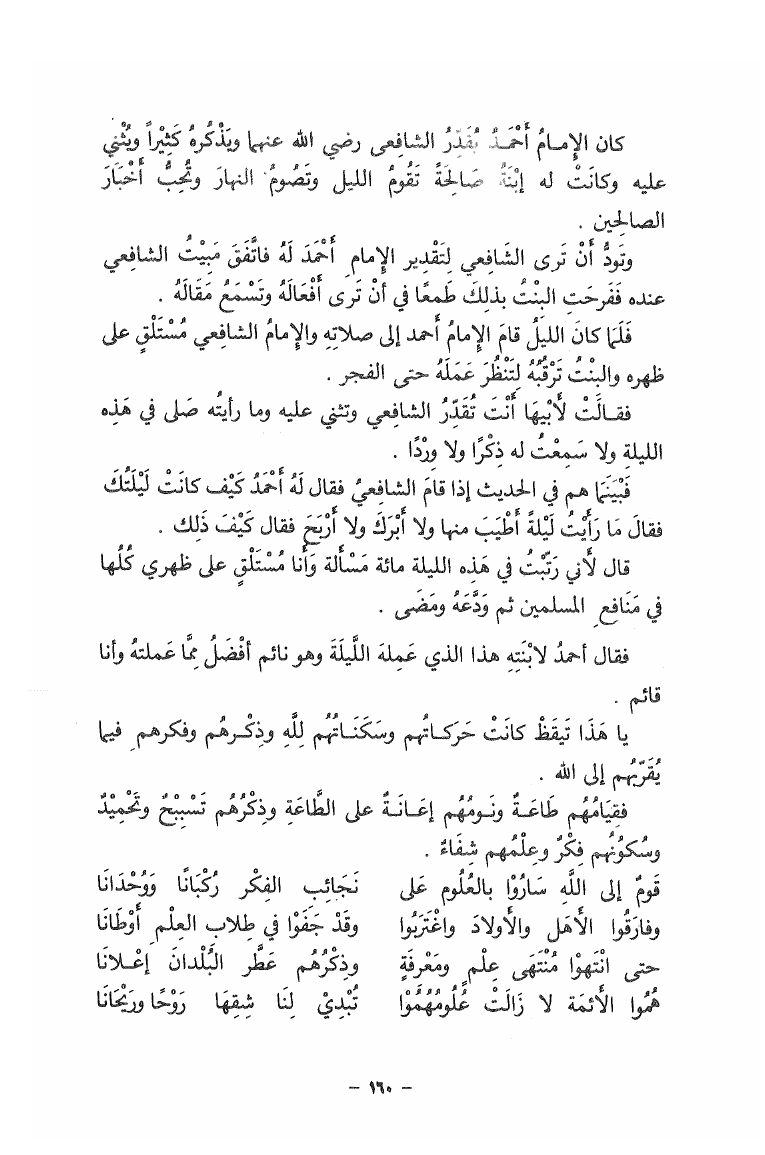 كان الإمـامُ أَحْمَـدُ يُقَدِّرُ الشافِعى رضي الله عنهما ويَذْكُرهُ كَثِيْراً ويُثْني
عليه وكانَتْ له إبْنَةُ صَالِحَةً تَقُومُ الليل وتَصُومُ النهارَ وتُحِبُّ أَخْبَارَ
الصالحين .
وتَودُّ أَنْ تَرى الشَافِعي لِتَقْدِير الإمام أَحْمَدَ لَهُ فاتَّفَقَ مَبِيْتُ الشافِعي
عنده فَفَرحَتِ البنْتُ بذلِكَ طَمعًا في أنْ تَرى أفْعَالَهُ وتَسْمَعُ مَقَالَهُ .
فَلَمَا كانَ الليلُ قامَ الإمامُ أَحمد إلى صلاتِهِ والإمامُ الشافِعي مُسْتَلْقٍ على
ظهره والبِنْتُ تَرْقُبُهُ لِتَنْظُرَ عَمَلَهُ حتى الفجر .
فقـالَتْ لأَبْيهَا أَنْتَ تُقَدِّرُ الشافِعي وتثني عليه وما رأيتُه صَلى في هَذِه
الليلةِ ولا سَمِعْتُ له ذِكْرًا ولا وِرْدًا .
فَبْيَنَمَا هم في الحديث إذا قامَ الشافِعيُ فقال لَهُ أَحْمَدُ كَيْف كانَتْ لَيْلَتُكَ
فقالَ مَا رَأَيْتُ لَيْلةً أَطْيَبَ منها ولا أَبْرَكَ ولا أَرْبَحَ فقال كَيْفَ ذَلِك .
قال لأَني رَتَّبْتُ في هَذِه الليلة مائة مَسْأَلة وَأَنا مُسْتَلْقٍ على ظهري كُلُها
في مَنَافِعِ المسلمين ثم وَدَّعَهُ ومَضَى .
فقال أحمدُ لابْنَتِهِ هذا الذي عَمِلهَ اللَّيلَةَ وهو نائم أفْضَلُ مِمَّا عَملتهُ وأنا
قائم .
يا هَذَا تَيقَظْ كانَتْ حَرَكـاتُهم وسَكَنَـاتُهُم لِلَّهِ وذِكْـرهُم وفكرهم فيما
يُقَرِّبُهم إلى الله .
فقِيَامُهُم طَاعَـةٌ ونَـومُهُم إعَـانَـةٌ على الطَّاعَةِ وذِكْرُهُم تَسْبِيْحٌ وتَحْمِيْدٌ
وسُكوُنُهم فِكْرٌ وعِلْمُهم شِفَاءٌ .
قَومٌ إلى اللَّهِ سَارُوْا بالعُلُوم عَلى نَجَائِبِ الفِكْر رُكْبَانًا ووُحْدَانَا
وفارَقُوا الأَهَل والأَولادَ واغْتَرَبُوا وقَدْ جَفَوْا في طِلابِ العِلْم أَوْطَانَا
حتى انْتَهوْا مُنْتَهَى عِلْمٍ ومَعْرِفَةٍ وذِكْرُهُم عَطَّر البُلْدانَ إعْـلانَا
هُمُوا الأَئمَة لا زَالَتْ عُلُومُهُمُوْا تُبْدِيْ لَنَا شِقِهَا رَوْحًا ورَيْحَانَا
– ١٦٠ –